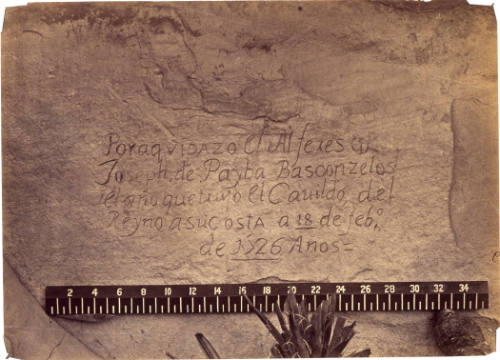 Por aqui pazo el Alferes Dn
Joseph de Payba Basconzelos
el año que tuvo el Cavildo del
Reyno a su costa a 18 de febo
de 1726 Años=
2 4 6 8 10 12 14 16 18 20 22 24 26 28 30 32 34